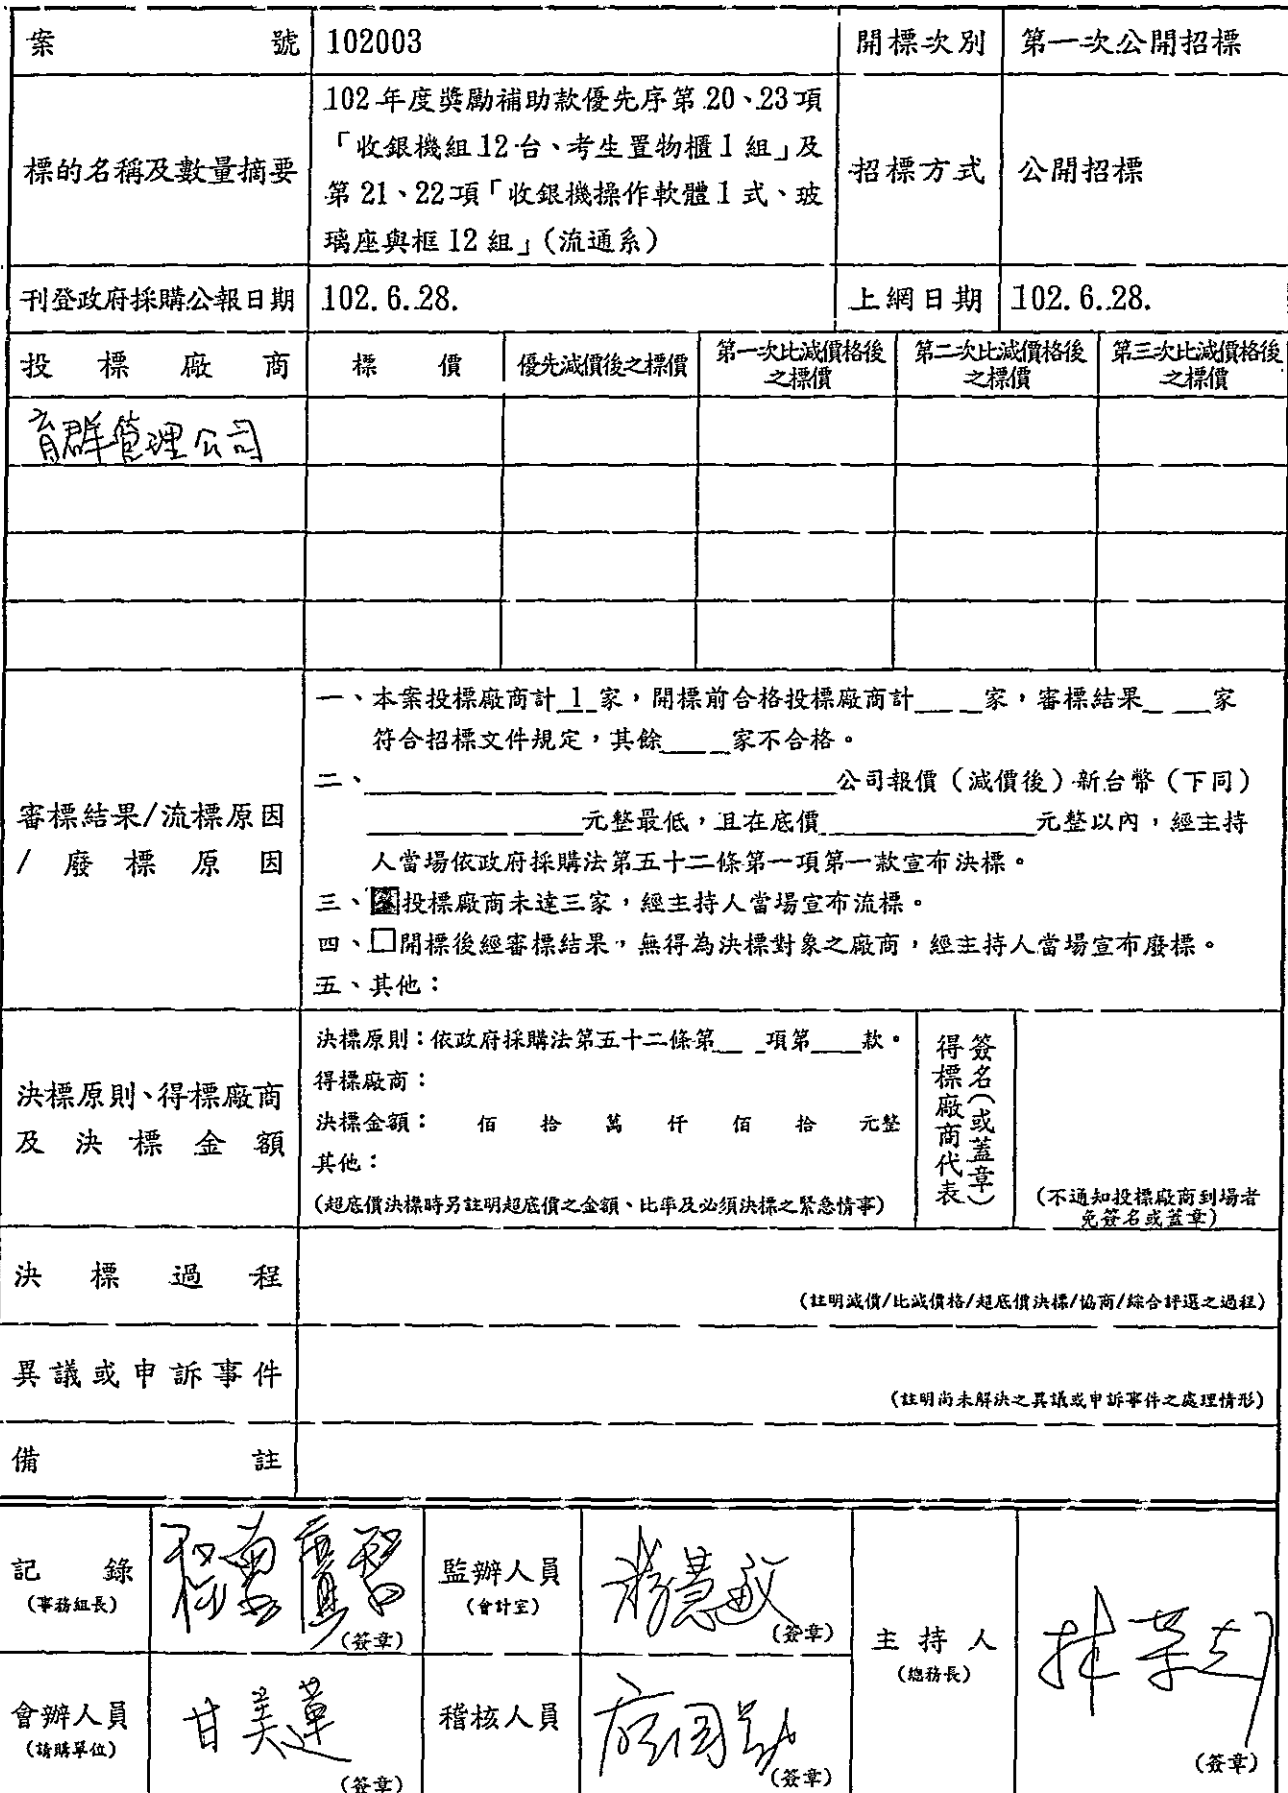 案號 102003 開標次別 第一次公開招標
標的名稱及數量摘要
102年度獎勵補助款優先序第20、23項
「收銀機組12台、考生置物櫃1組」及
第21、22項「收銀機操作軟體1式、玻
璃座與框12組」(流通系)
招標方式 公開招標
刊登政府採購公報日期 102.6.28. 上網日期 102.6.28.
投標廠商 標價 優先減價後之標價 第一次比減價格後之標價 第二次比減價格後之標價 第三次比減價格後之標價
育群管理公司
審標結果/流標原因
/廢標原因
一、本案投標廠商計 1 家,開標前合格投標廠商計____家,審標結果____家
符合招標文件規定,其餘____家不合格。
二、____________公司報價(減價後)新台幣(下同)
________元整最低,且在底價________元整以內,經主持
人當場依政府採購法第五十二條第一項第一款宣布決標。
三、投標廠商未達三家,經主持人當場宣布流標。
四、□開標後經審標結果,無得為決標對象之廠商,經主持人當場宣布廢標。
五、其他:
決標原則、得標廠商
及決標金額
決標原則:依政府採購法第五十二條第____項第____款。
得標廠商:
決標金額: 佰 拾 萬 仟 佰 拾 元整
其他:
(超底價決標時另註明超底價之金額、比率及必須決標之緊急情事)
得標廠商代表
簽名(或蓋章)
(不通知投標廠商到場者
免簽名或蓋章)
決標過程
(註明減價/比減價格/超底價決標/協商/綜合評選之過程)
異議或申訴事件
(註明尚未解決之異議或申訴事件之處理情形)
備註
記錄
(事務組長)
(簽章)
監辦人員
(會計室)
(簽章)
主持人
(總務長)
(簽章)
會辦人員
(請購單位)
甘美蓮
(簽章)
稽核人員
(簽章)